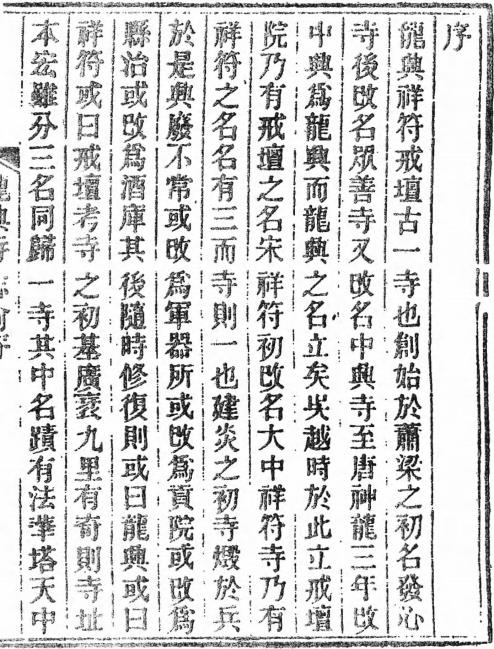 序
龍興祥符戒壇古一寺也剏始於蕭梁之初名發心
寺後改名眾善寺又改名中興寺至唐神龍三年改
中興為龍興而龍興之名立矣吳越時於此立戒壇
院乃有戒壇之名宋祥符初改名大中祥符寺乃有
祥符之名名有三而寺則一也建炎之初寺燬於兵
於是興廢不常或改為軍器所或改為貢院或改為
縣治或改為酒庫其後隨時修復則或曰龍興或曰
祥符或曰戒壇考寺之初基廣袤九里有奇則寺址
本宏雖分三名同歸一寺其中名蹟有法華塔天中